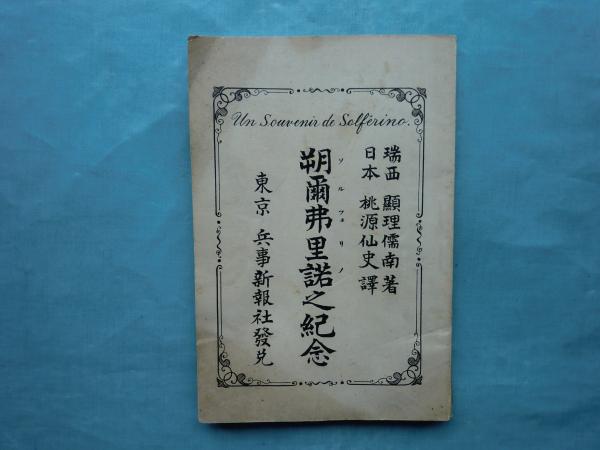 Un Souvenir de Solférino.
瑞西 顯理儒南著
日本 桃源仙史譯
ソルフェリノ
朔爾弗里諾之紀念
東京 兵事新報社發兌